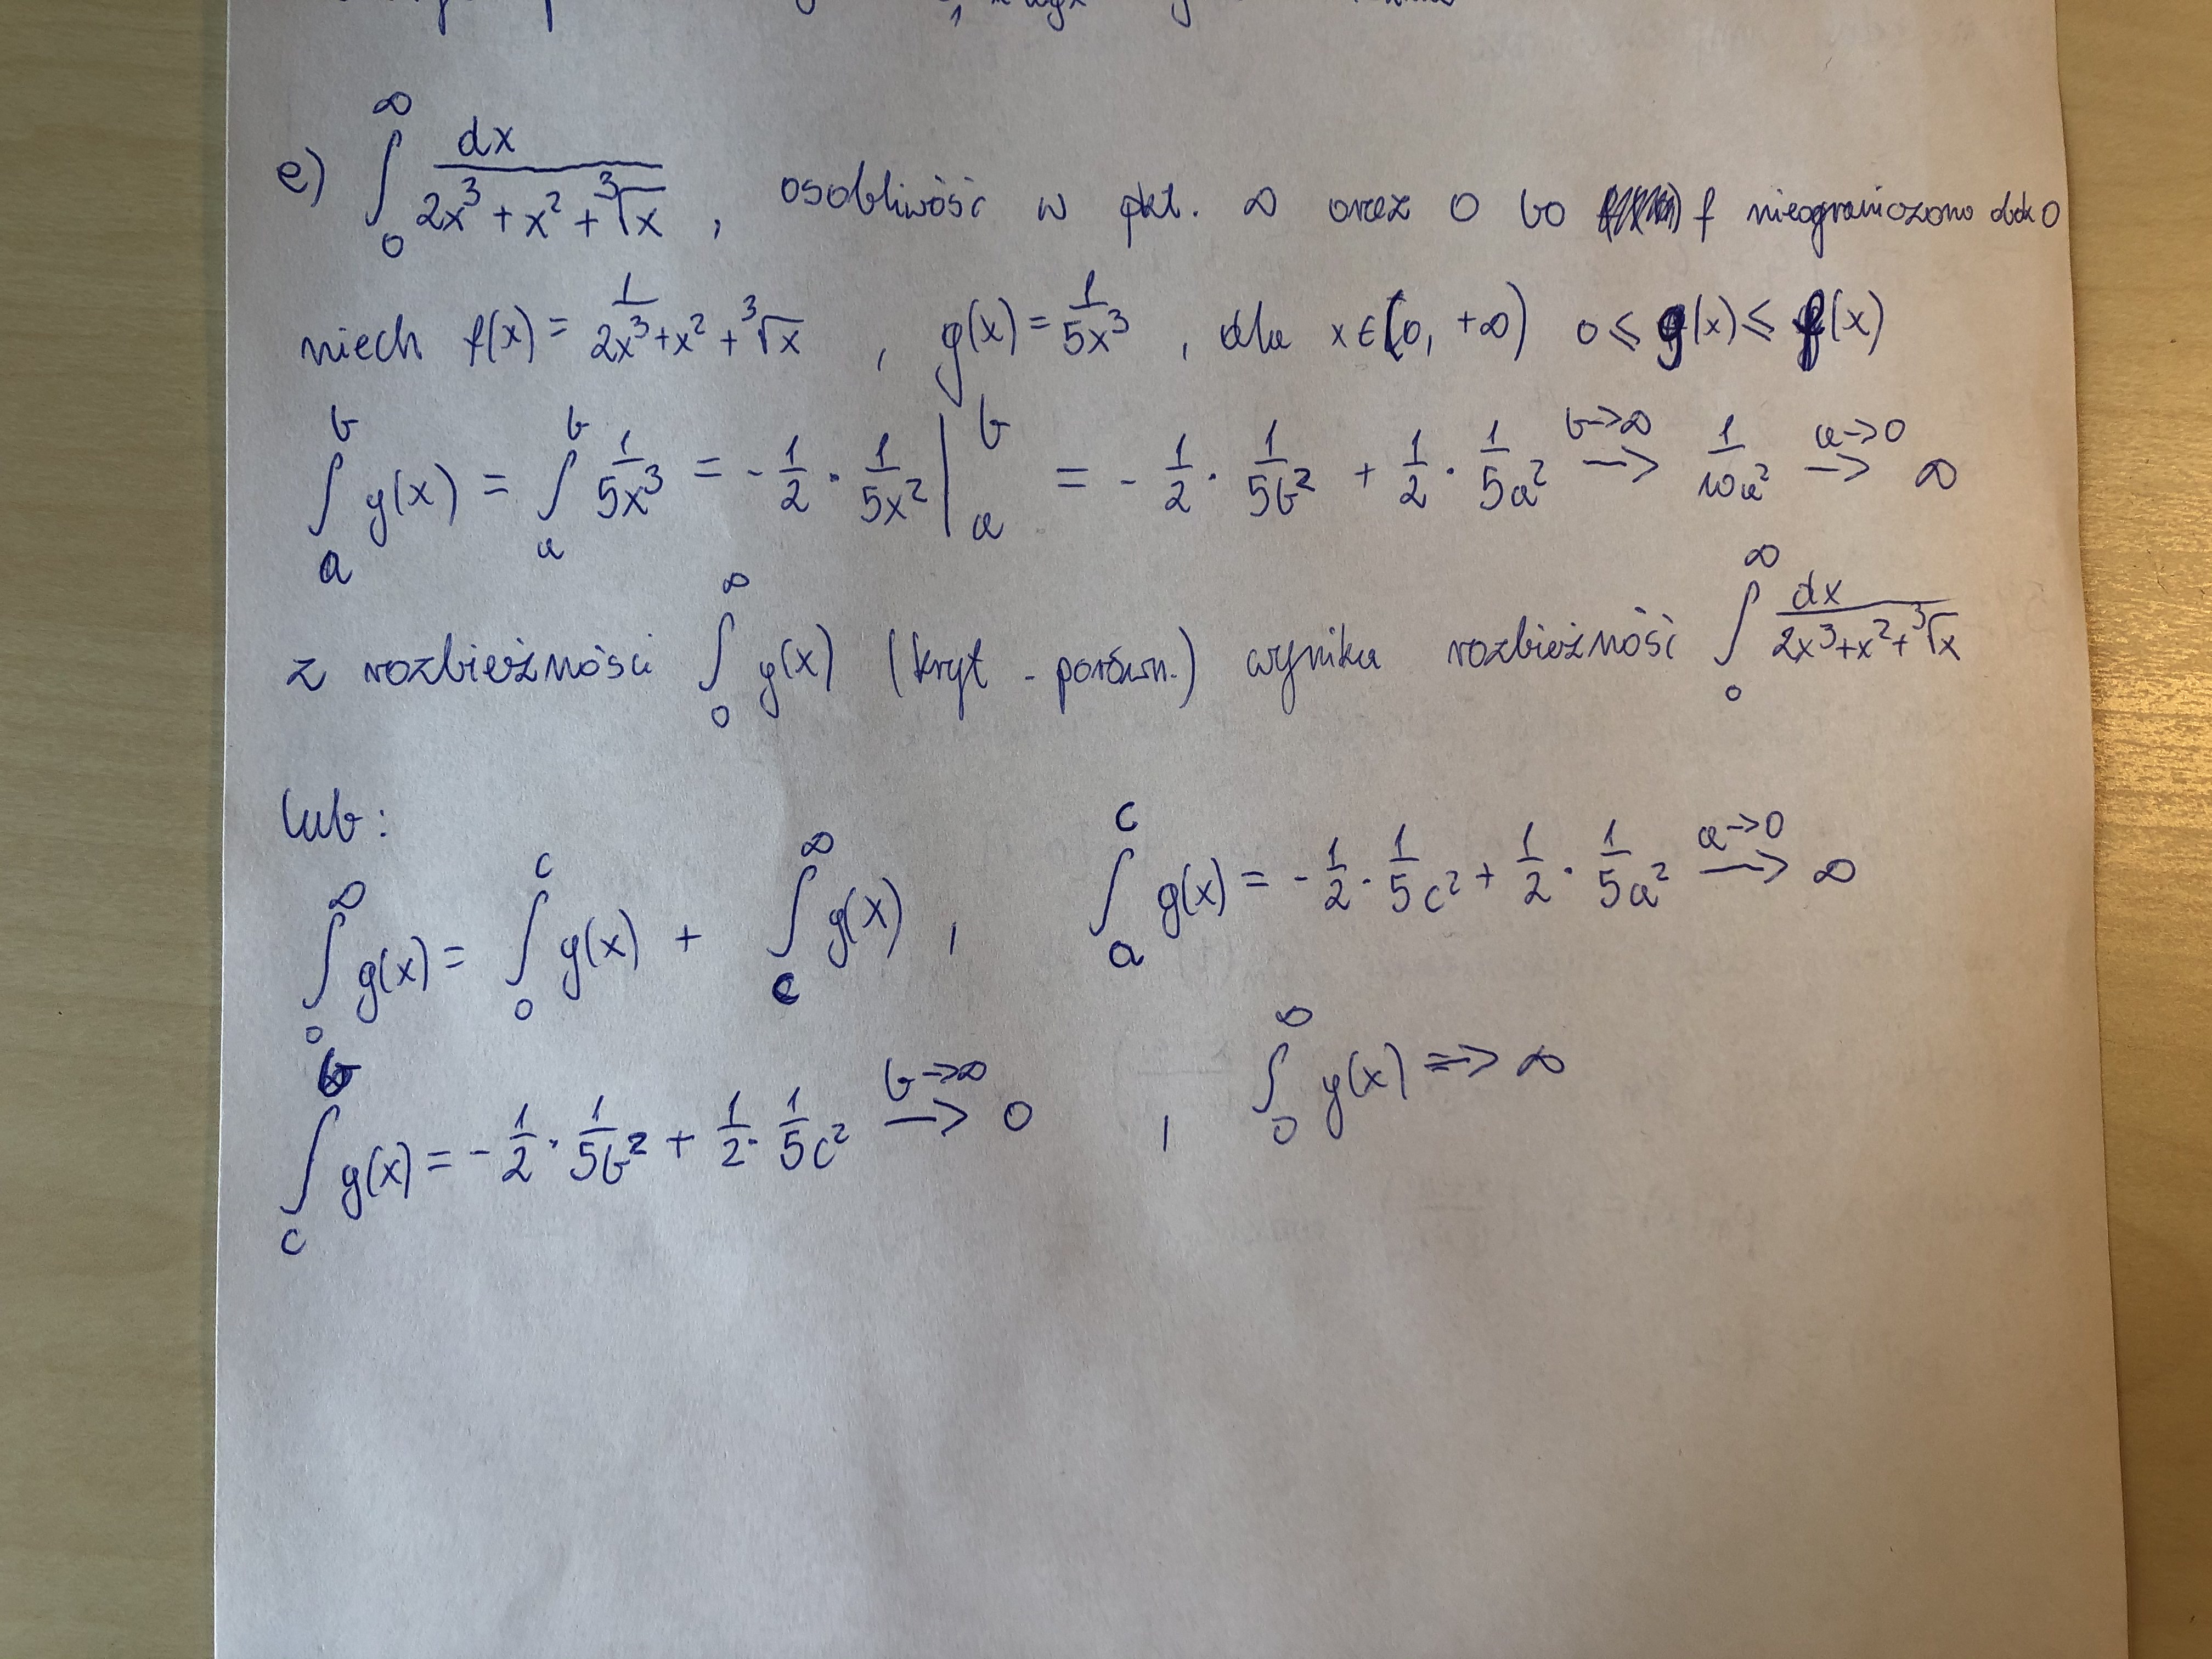 e) ∫₀^∞ dx / (2x³ + x² + ∛x) , osobliwość w pkt. ∞ oraz 0 bo f nieograniczona dok 0
niech f(x) = 1 / (2x³ + x² + ∛x) , g(x) = 1 / 5x³ , dla x ∈ (0, +∞) 0 ≤ g(x) ≤ f(x)
∫ₐᵇ g(x) = ∫ₐᵇ 1/5x³ = -1/2 · 1/5x² |ₐᵇ = -1/2 · 1/5b² + 1/2 · 1/5a² →(b→∞) 1/10a² →(a→0) ∞
z rozbieżności ∫₀^∞ g(x) (kryt. porówn.) wynika rozbieżność ∫₀^∞ dx / (2x³ + x² + ∛x)
lub:
∫₀^∞ g(x) = ∫₀^c g(x) + ∫_c^∞ g(x) , ∫ₐ^c g(x) = -1/2 · 1/5c² + 1/2 · 1/5a² →(a→0) ∞
∫_c^b g(x) = -1/2 · 1/5b² + 1/2 · 1/5c² →(b→∞) 0 , ∫₀^∞ g(x) => ∞